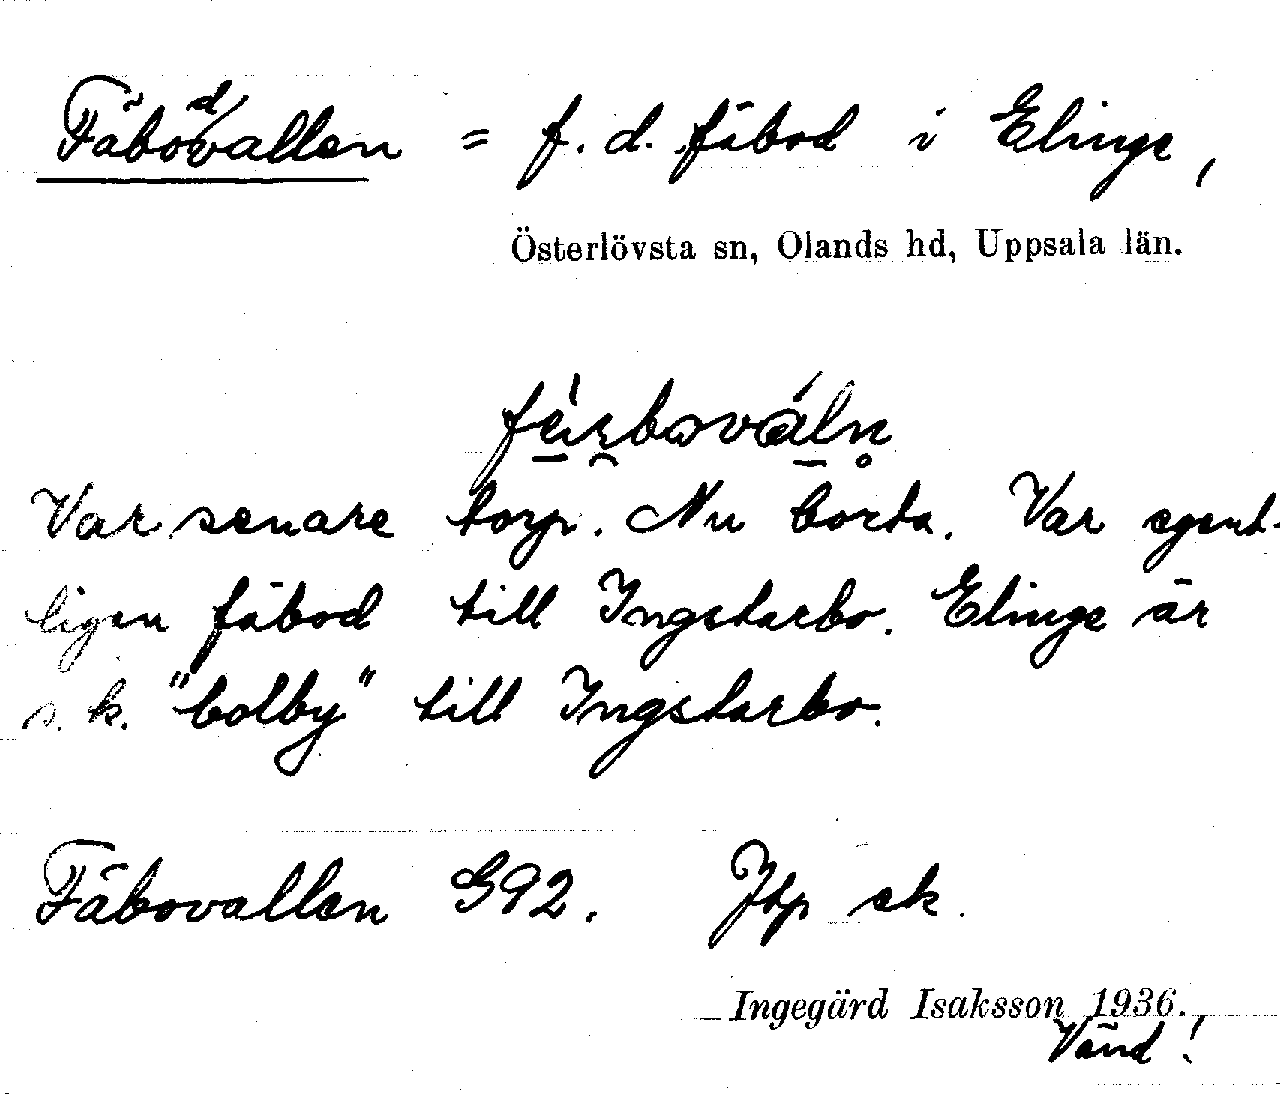 Fäbodvallen = f. d. fäbod i Elinge,
Österlövsta sn, Olands hd, Uppsala län.
Var senare torp. Nu borta. Var egent-
ligen fäbod till Ingstarbo. Elinge är
s. k. "bolby" till Ingstarbo.
Fäbovallen G92. Jtp ek.
Ingegärd Isaksson 1936.
Vänd!